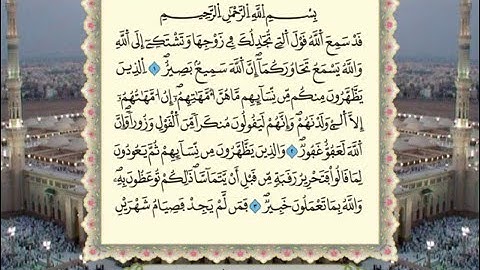 بِسْمِ اللَّهِ الرَّحْمَٰنِ الرَّحِيمِ
قَدْ سَمِعَ اللَّهُ قَوْلَ الَّتِي تُجَادِلُكَ فِي زَوْجِهَا وَتَشْتَكِي إِلَى اللَّهِ
وَاللَّهُ يَسْمَعُ تَحَاوُرَكُمَا إِنَّ اللَّهَ سَمِيعٌ بَصِيرٌ ١ الَّذِينَ
يَظَّهَّرُونَ مِنكُم مِّن نِّسَائِهِم مَّا هُنَّ أُمَّهَاتِهِمْ إِنْ أُمَّهَاتُهُمْ
إِلَّا الَّٰـِٔي وَلَدْنَهُمْ وَإِنَّهُمْ لَيَقُولُونَ مُنكَرًا مِّنَ الْقَوْلِ وَزُورًا وَإِنَّ
اللَّهَ لَعَفُوٌّ غَفُورٌ ٢ وَالَّذِينَ يَظَّهَّرُونَ مِن نِّسَائِهِمْ ثُمَّ يَعُودُونَ
لِمَا قَالُوا فَتَحْرِيرُ رَقَبَةٍ مِّن قَبْلِ أَن يَتَمَاسَّا ذَٰلِكُمْ تُوعَظُونَ بِهِ
وَاللَّهُ بِمَا تَعْمَلُونَ خَبِيرٌ ٣ فَمَن لَّمْ يَجِدْ فَصِيَامُ شَهْرَيْنِ